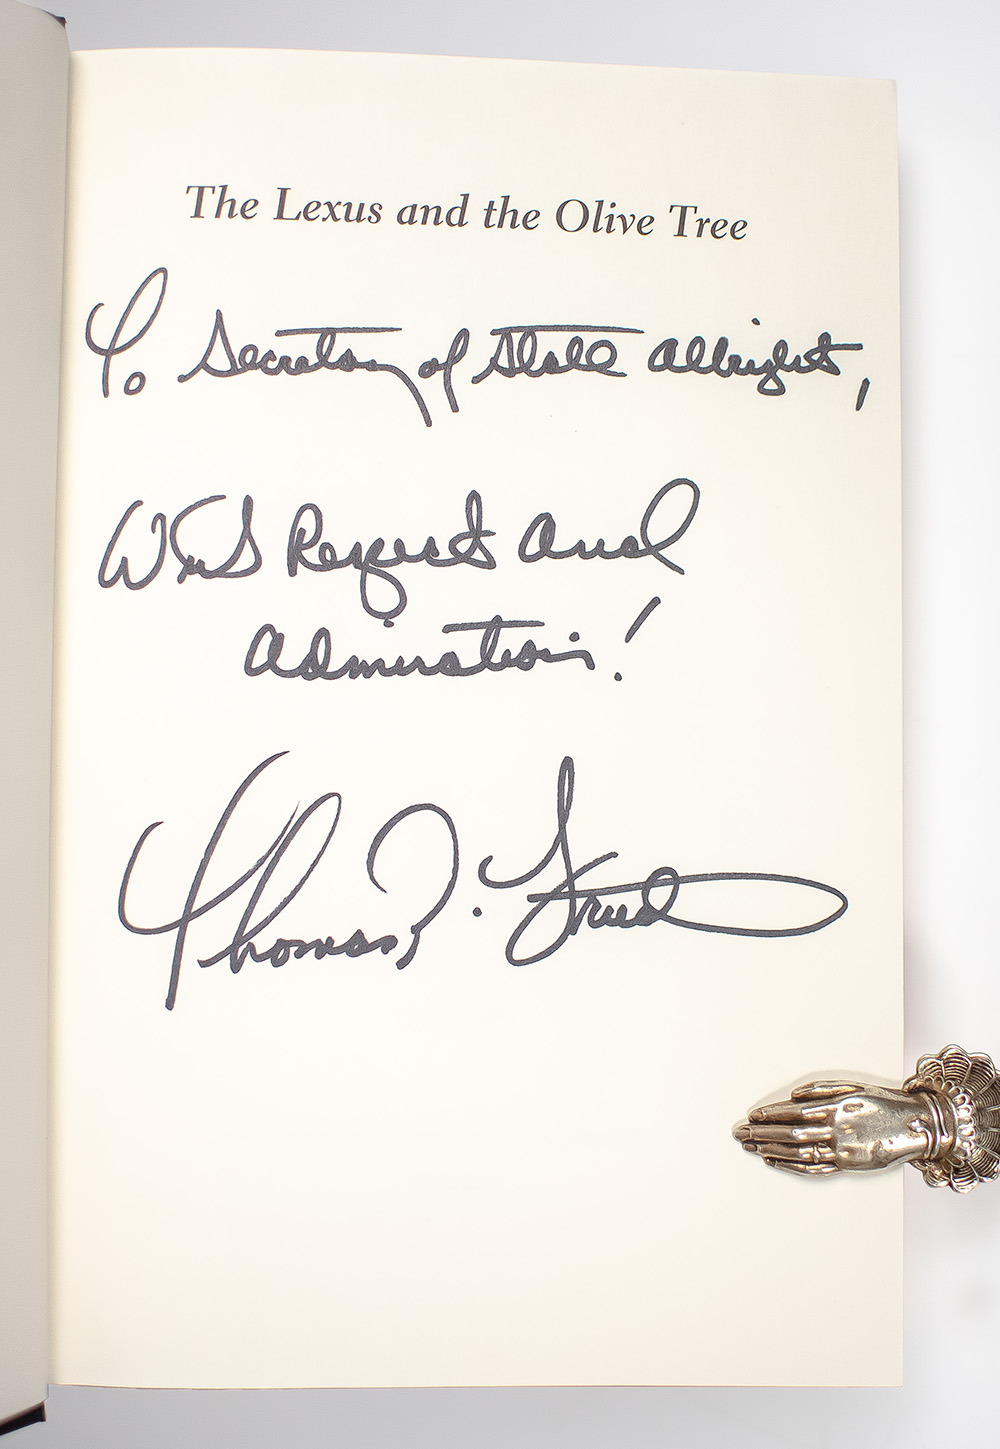 The Lexus and the Olive Tree
To Secretary of State Albright,
With Respect and
Admiration!
Thomas L. Friedman